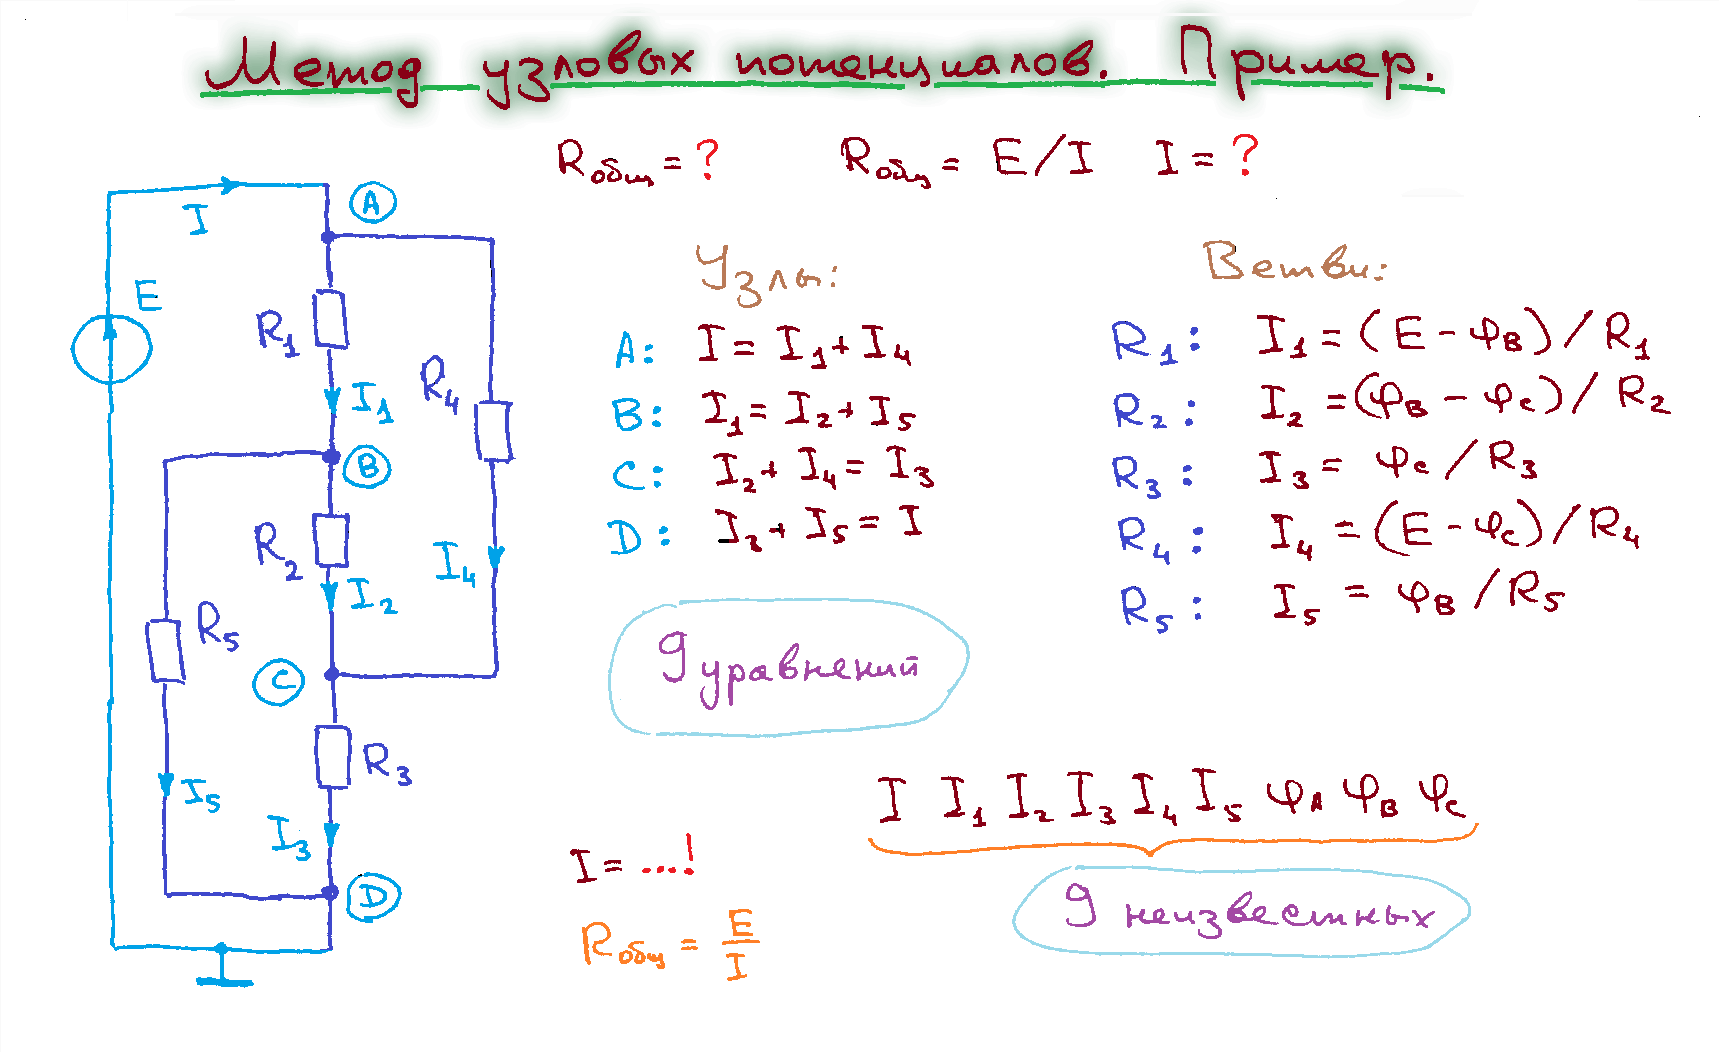 Метод узловых потенциалов. Пример.
Rобщ = ? Rобщ = E/I I = ?
I
A
E
R1
I1
R4
B
R2
I2
I4
R5
C
R3
I5
I3
D
Узлы:
A: I = I1 + I4
B: I1 = I2 + I5
C: I2 + I4 = I3
D: I3 + I5 = I
9 уравнений
Ветви:
R1: I1 = (E - φB) / R1
R2: I2 = (φB - φC) / R2
R3: I3 = φC / R3
R4: I4 = (E - φC) / R4
R5: I5 = φB / R5
I I1 I2 I3 I4 I5 φA φB φC
9 неизвестных
I = ...!
Rобщ = E/I